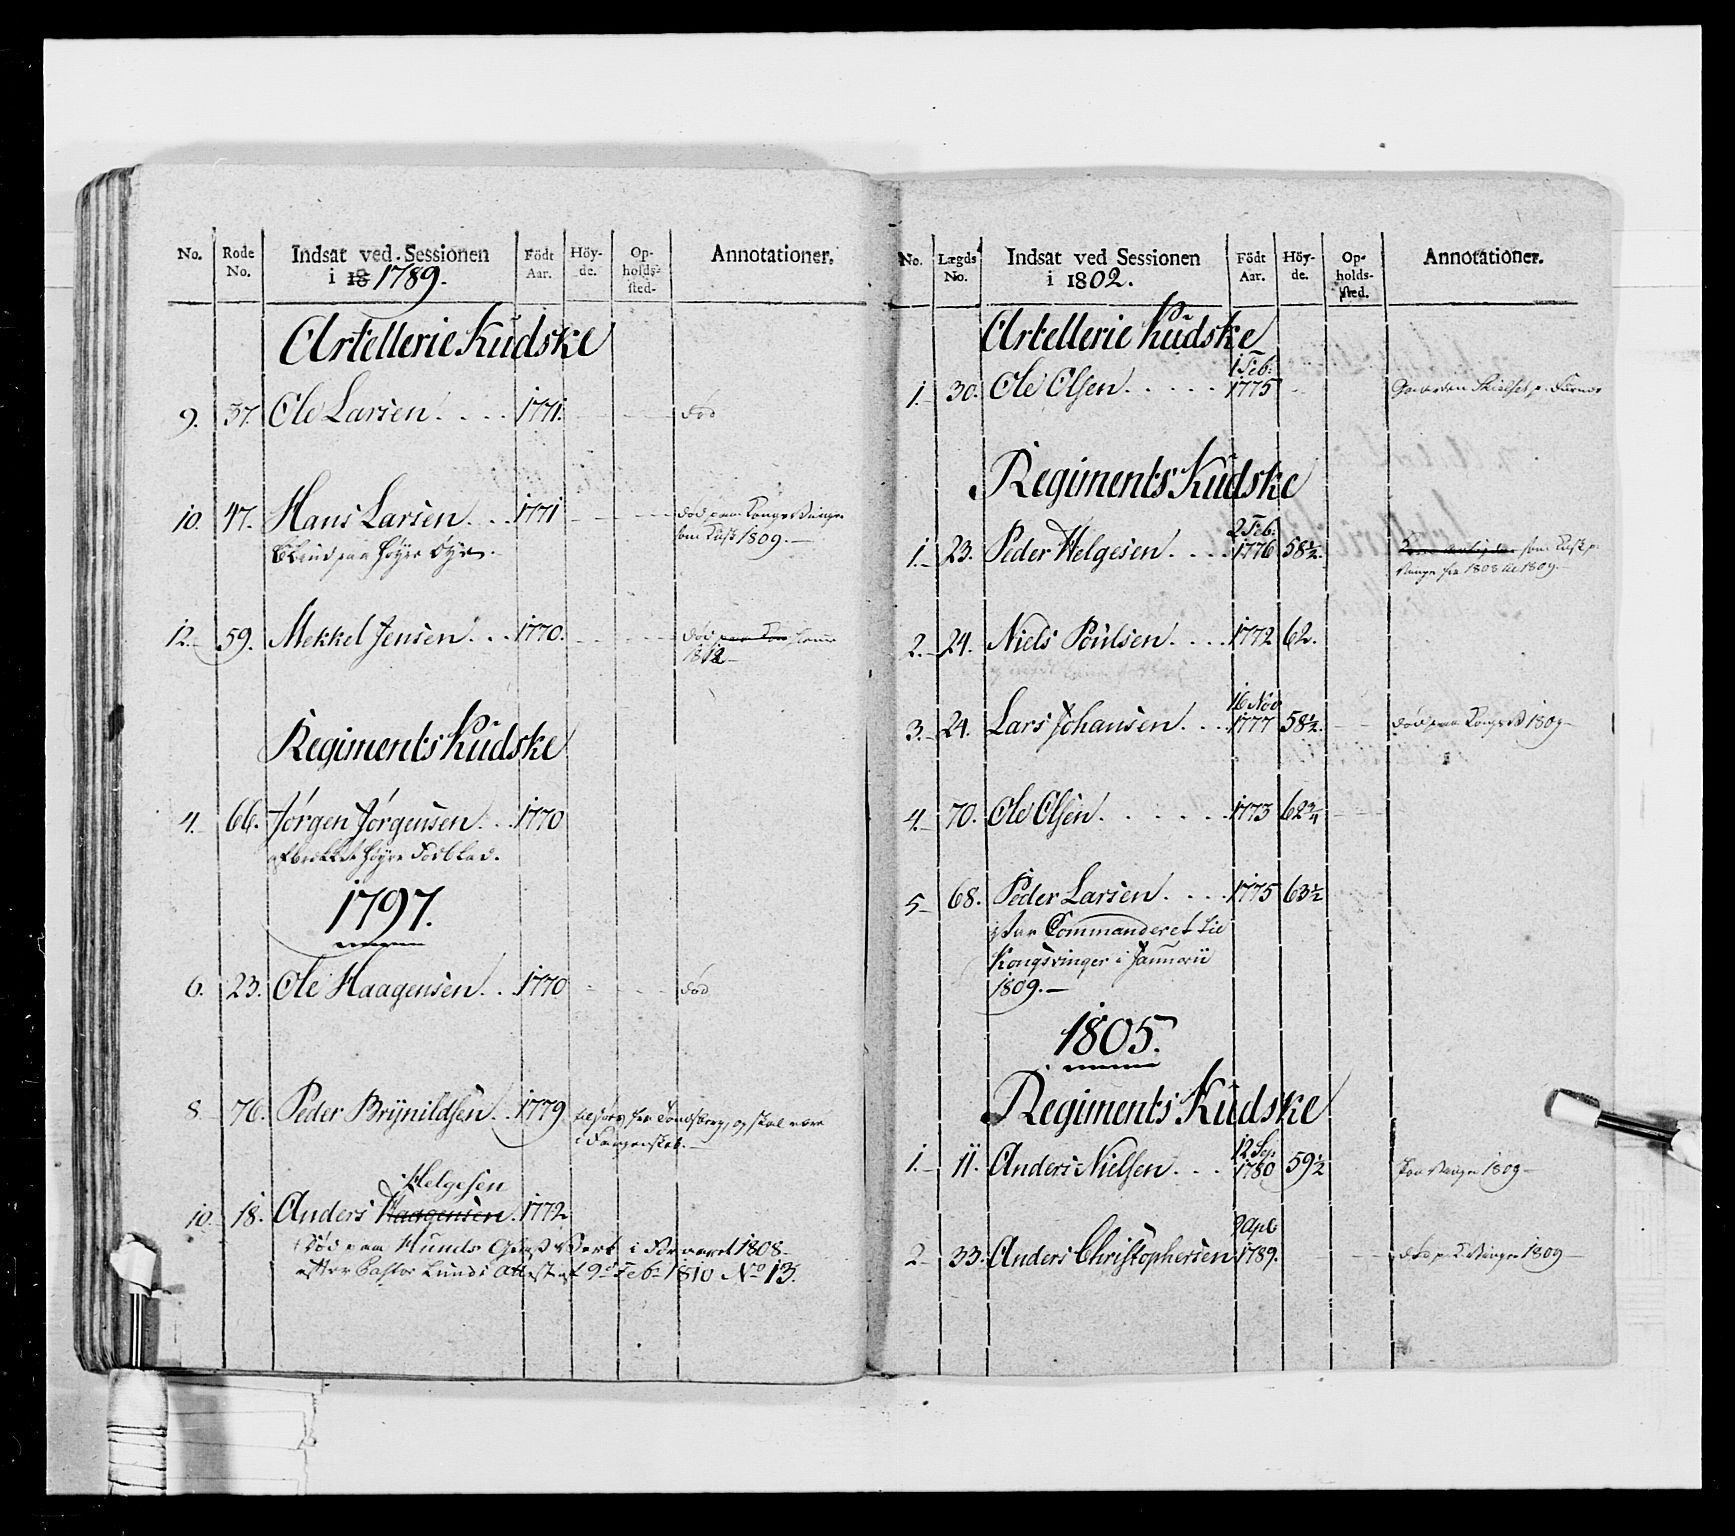 No. Rode No. Indsat ved Sessionen i 18 1789. Födt Aar. Höyde. Opholdssted. Annotationer.
Artellerie Kudske
9. 37. Ole Larsen. . . . 1771. död
10. 47. Hans Larsen. . . 1771 död paa Kongsvinger
Blind paa höyre Öye. som Kusk 1809.
12. 59. Mekkel Jensen. . . 1770. död
1812
Regiments Kudske
4. 66. Jörgen Jörgensen. . . 1770
höyre
1797.
6. 23. Ole Haagensen. . . 1770 död
8 76. Peder Brÿnildsen. . 1779 og skal være
i Fangenskab.
Helgesen
10. 18. Anders Haagensen. 1772
Död paa Hunds Glas Verk i Foraaret 1808
efter Pastor Lunds Attest af 9de Feb: 1810 No 13.
No. Lægds No. Indsat ved Sessionen i 1802. Födt Aar. Höyde. Opholdssted. Annotationer.
Artellerie Kudske
1. 30. Ole Olsen. . . . . 1 Feb: 1775
Regiments Kudske
1. 23. Peder Helgesen. . . . 2 Feb: 1776 58½. som Kusk p.
fra 1808 til 1809.
2. 24. Niels Poulsen. . . . 1772 62.
3. 24. Lars Johansen. . . 16 Nov 1777 58½. död paa 1809
4. 70. Ole Olsen. . . . . . 1773 62¾
5 68. Peder Larsen. . . . 1775 63½
var Commanderet til
Kongsvinger i Januarii
1809.
1805.
Regiments Kudske
1. 11. Anders Nielsen. . . . 12 Sep 1780 59½ 1809
2 33. Anders Christophersen 1789. 1809